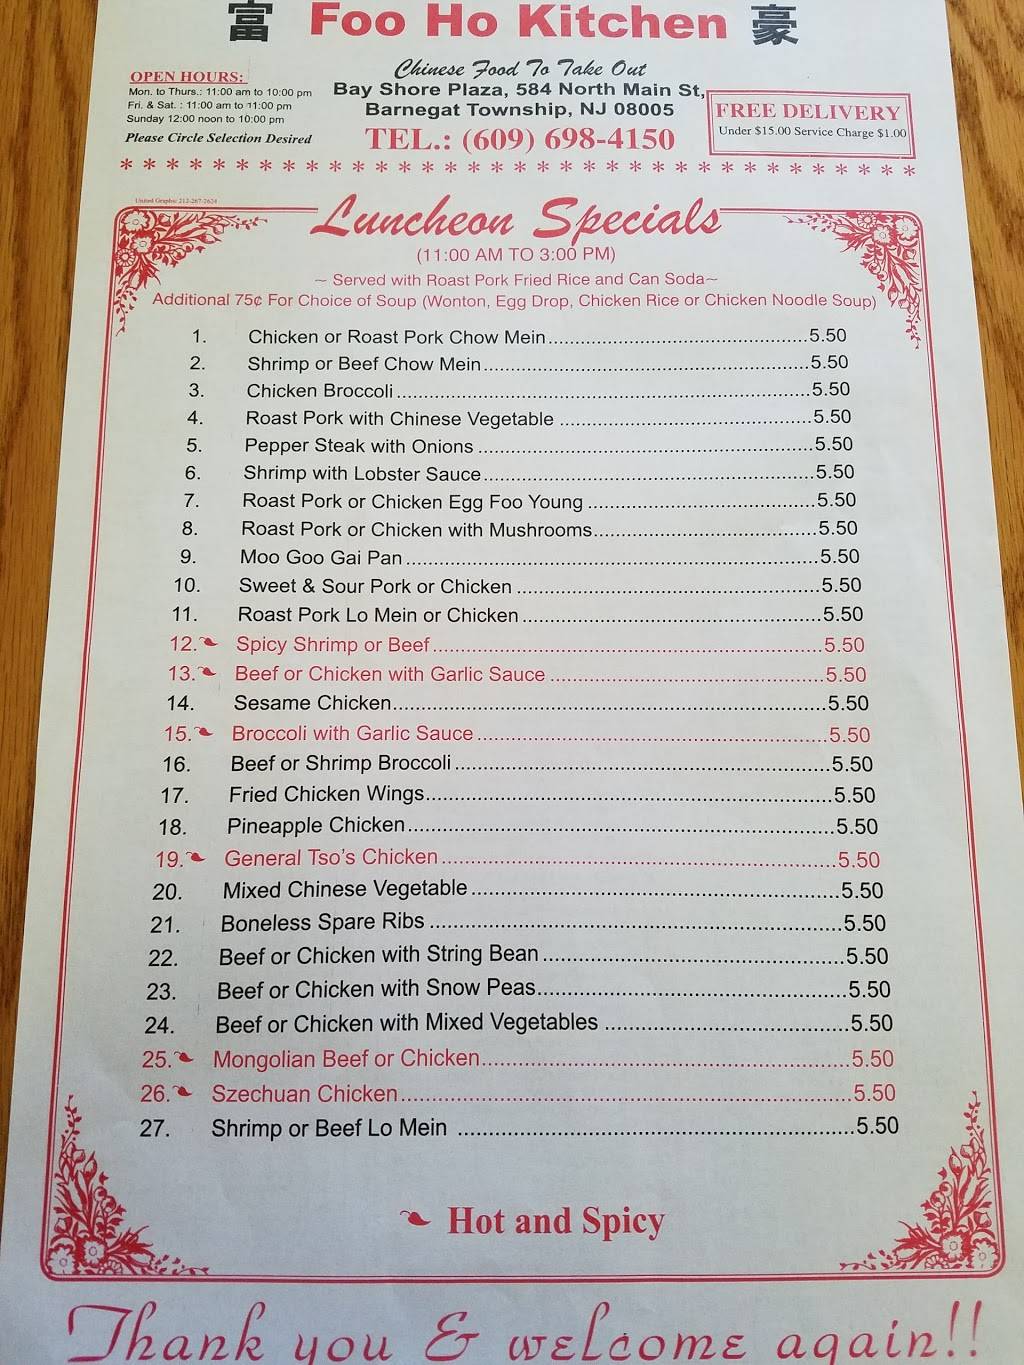 富 Foo Ho Kitchen 豪
Chinese Food To Take Out
Bay Shore Plaza, 584 North Main St,
Barnegat Township, NJ 08005
TEL.: (609) 698-4150
OPEN HOURS:
Mon. to Thurs.: 11:00 am to 10:00 pm
Fri. & Sat. : 11:00 am to 11:00 pm
Sunday 12:00 noon to 10:00 pm
Please Circle Selection Desired
FREE DELIVERY
Under $15.00 Service Charge $1.00
* * * * * * * * * * * * * * * * * * * * * * * * * * *
United Graphic 212-267-2624
Luncheon Specials
(11:00 AM TO 3:00 PM)
~ Served with Roast Pork Fried Rice and Can Soda~
Additional 75¢ For Choice of Soup (Wonton, Egg Drop, Chicken Rice or Chicken Noodle Soup)
1. Chicken or Roast Pork Chow Mein 5.50
2. Shrimp or Beef Chow Mein 5.50
3. Chicken Broccoli 5.50
4. Roast Pork with Chinese Vegetable 5.50
5. Pepper Steak with Onions 5.50
6. Shrimp with Lobster Sauce 5.50
7. Roast Pork or Chicken Egg Foo Young 5.50
8. Roast Pork or Chicken with Mushrooms 5.50
9. Moo Goo Gai Pan 5.50
10. Sweet & Sour Pork or Chicken 5.50
11. Roast Pork Lo Mein or Chicken 5.50
12. Spicy Shrimp or Beef 5.50
13. Beef or Chicken with Garlic Sauce 5.50
14. Sesame Chicken 5.50
15. Broccoli with Garlic Sauce 5.50
16. Beef or Shrimp Broccoli 5.50
17. Fried Chicken Wings 5.50
18. Pineapple Chicken 5.50
19. General Tso's Chicken 5.50
20. Mixed Chinese Vegetable 5.50
21. Boneless Spare Ribs 5.50
22. Beef or Chicken with String Bean 5.50
23. Beef or Chicken with Snow Peas 5.50
24. Beef or Chicken with Mixed Vegetables 5.50
25. Mongolian Beef or Chicken 5.50
26. Szechuan Chicken 5.50
27. Shrimp or Beef Lo Mein 5.50
Hot and Spicy
Thank you & welcome again!!